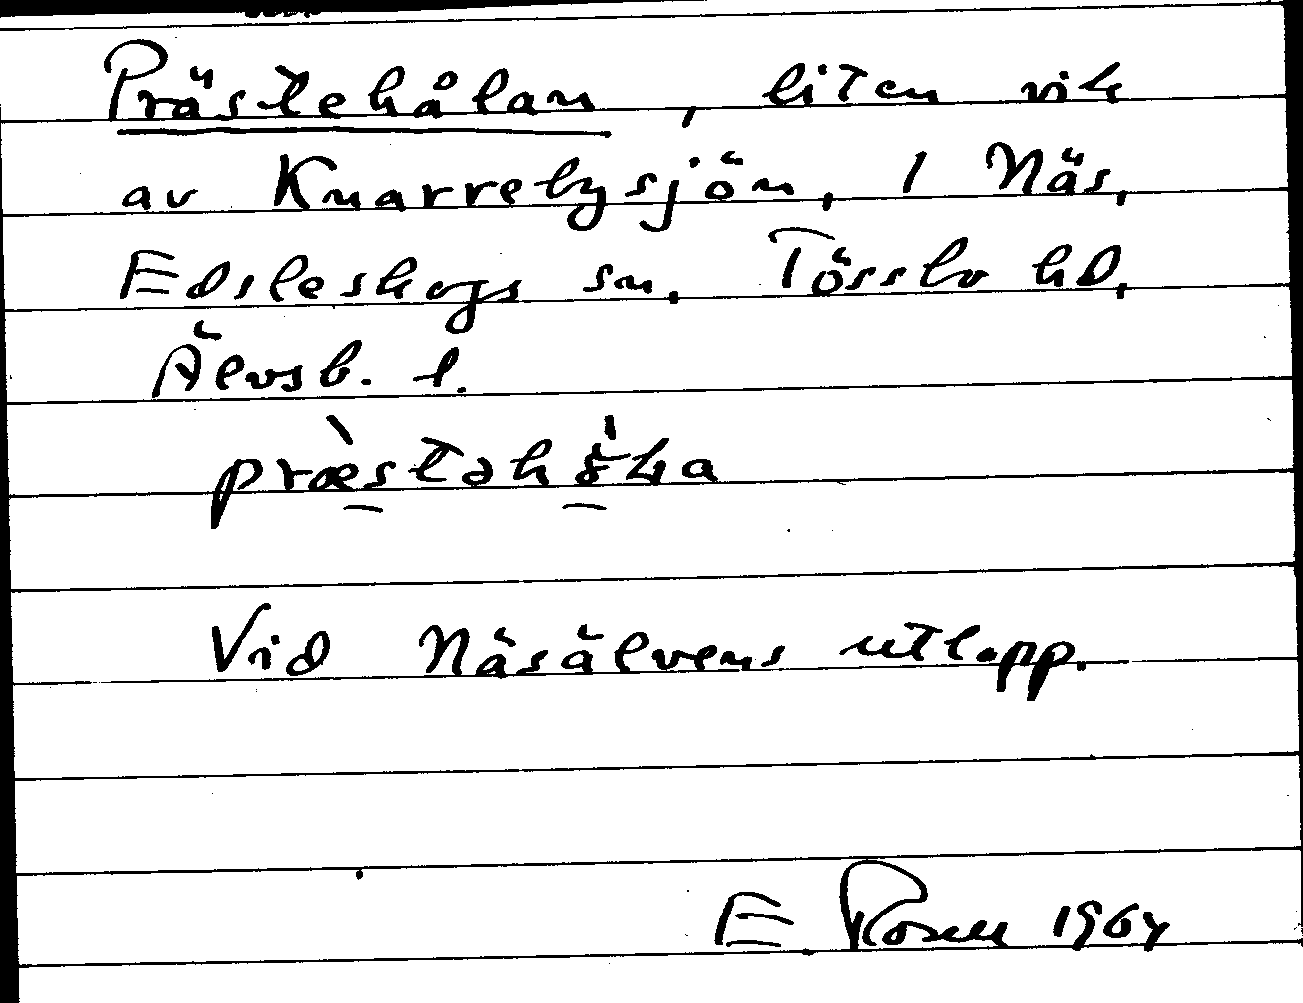 Prästehålan, liten vik
av Knarrebysjön, 1 Näs,
Edsleskogs sn. Tössbo hd,
Älvsb. l.
Vid Näsälvens utlopp.
E. Rosell 1964